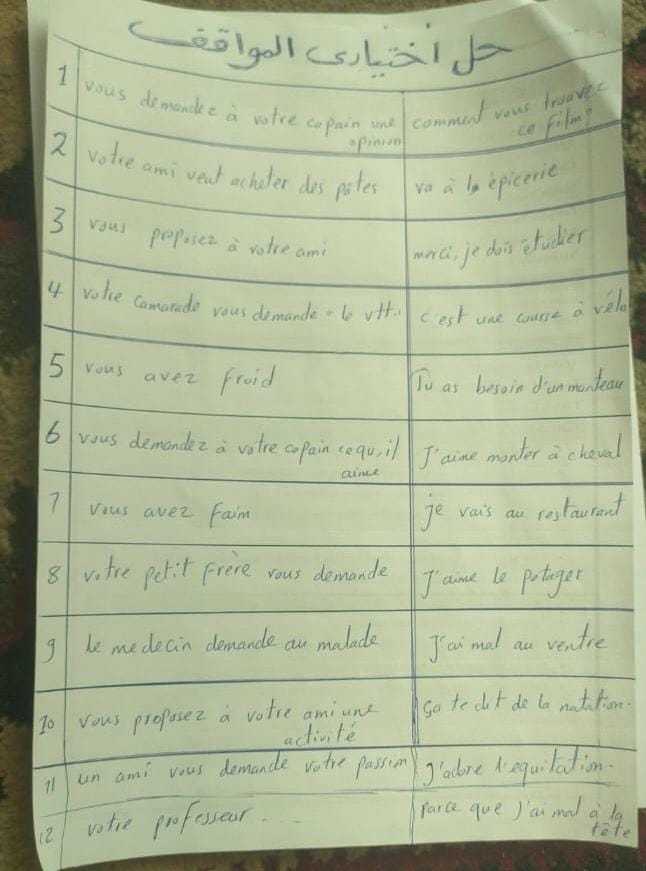 حل اختيارى المواقف
1 vous demandez à votre copain une opinion
comment vous trouvez ce film?
2 votre ami veut acheter des pâtes
va à la épicerie
3 vous proposez à votre ami
merci, je dois étudier
4 votre camarade vous demande "le vtt"
c'est une course à vélo
5 vous avez froid
Tu as besoin d'un manteau
6 vous demandez à votre copain ce qu,il aime
J'aime monter à cheval
7 vous avez faim
je vais au restaurant
8 votre petit frère vous demande
J'aime le potager
9 le medecin demande au malade
J'ai mal au ventre
10 vous proposez à votre ami une activité
ça te dit de la natation.
11 un ami vous demande votre passion
J'adore l'equitation.
12 votre professeur ....
parce que J'ai mal à la tête